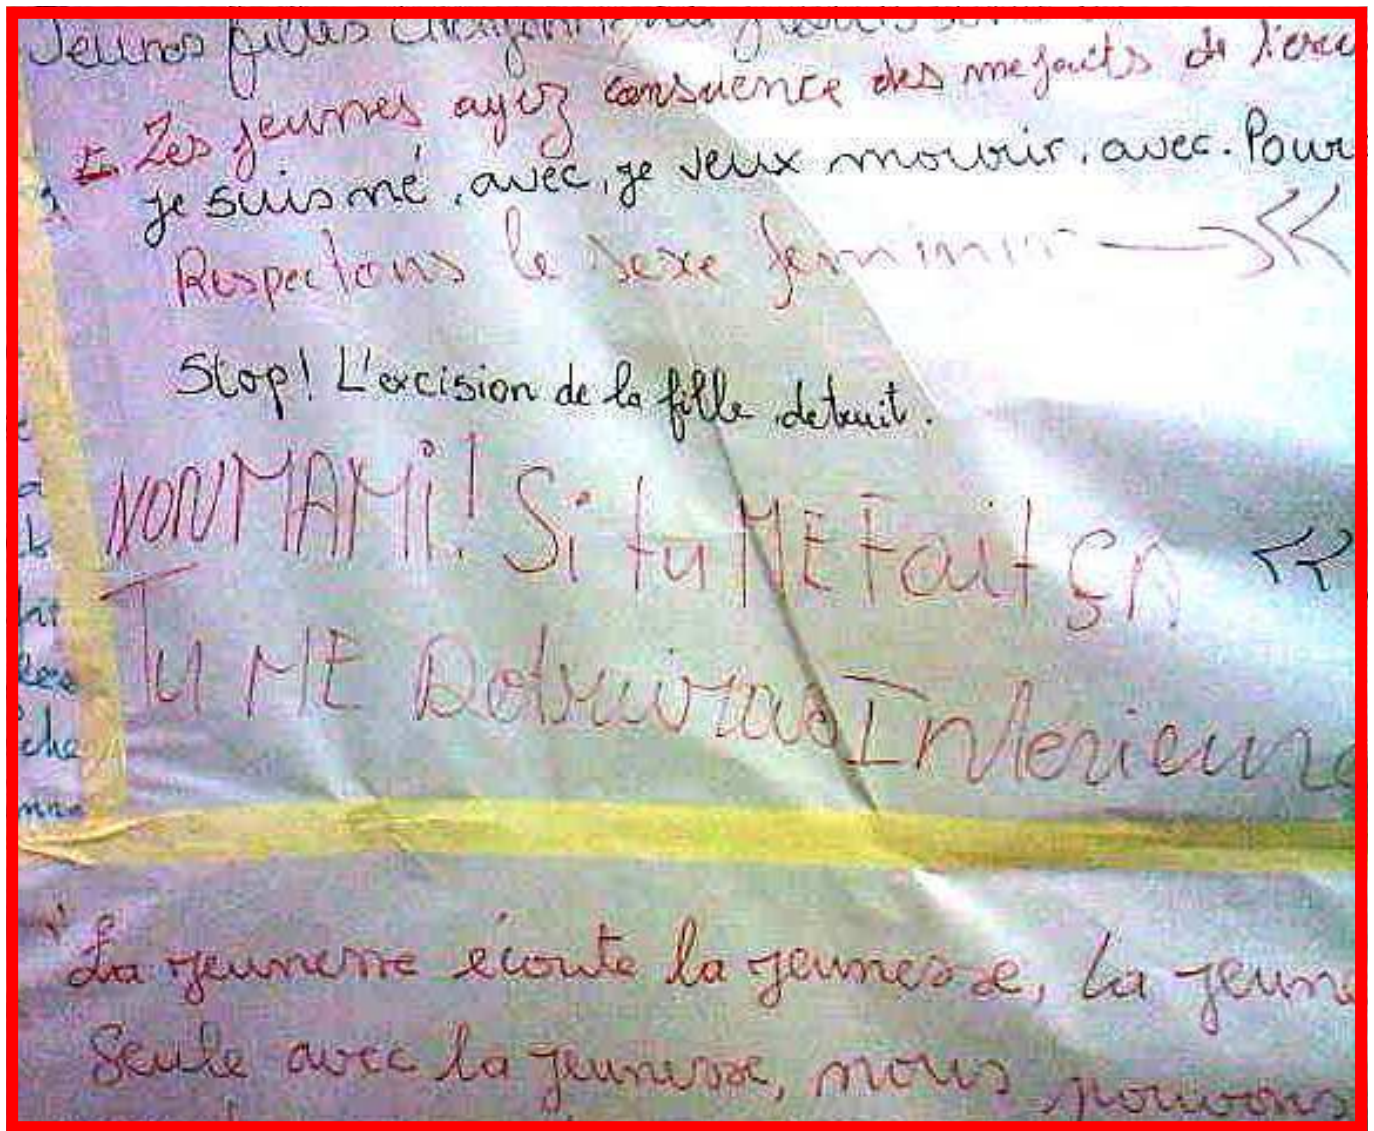 Jeunes filles
Les jeunes ayez consuence des mefaits de l'exci
je suis né, avec, je veux mourir, avec. Pour
Respectons le sexe feminin → <<
Stop! L'excision de la fille detruit.
NON MAMi! Si tu ME Fait ça <<
Tu ME Detruiras Interieure
La jeunesse écoute la jeunesse, La jeune
Seule avec la jeunesse, nous pouvons